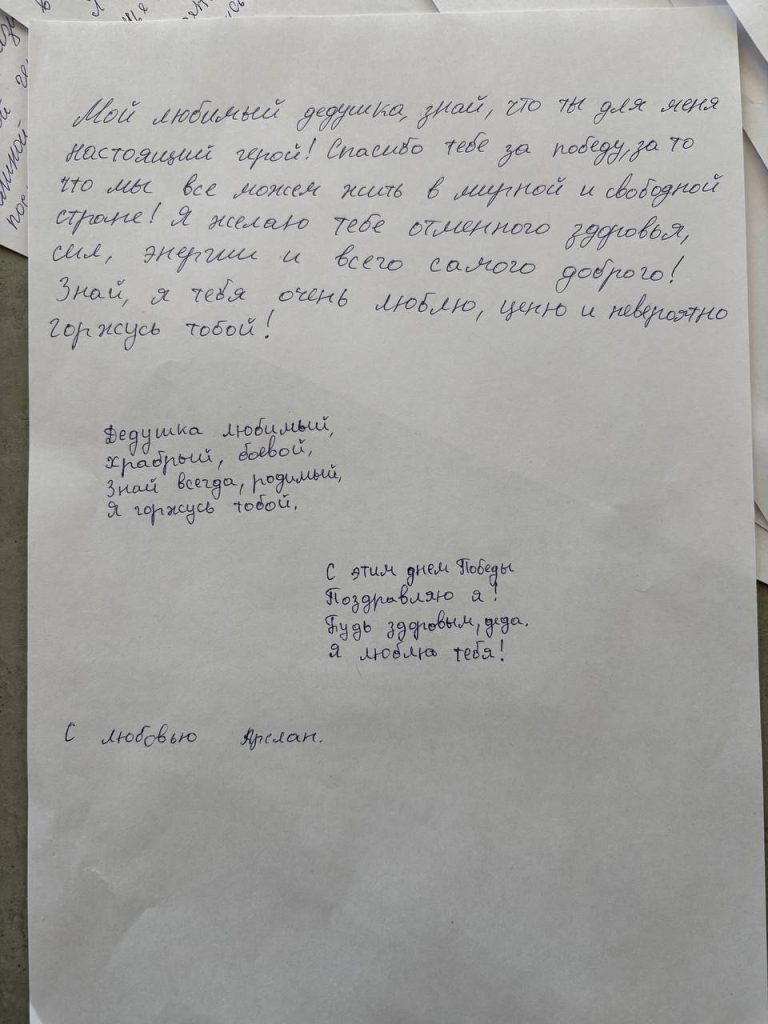 Мой любимый дедушка, знай, что ты для меня
настоящий герой! Спасибо тебе за победу, за то
что мы все можем жить в мирной и свободной
стране! Я желаю тебе отменного здоровья,
сил, энергии и всего самого доброго!
Знай, я тебя очень люблю, ценю и невероятно
горжусь тобой!
Дедушка любимый,
Храбрый, боевой,
Знай всегда, родимый,
Я горжусь тобой.
С этим днем Победы
Поздравляю я!
Будь здоровым, деда.
Я люблю тебя!
С любовью Арслан.